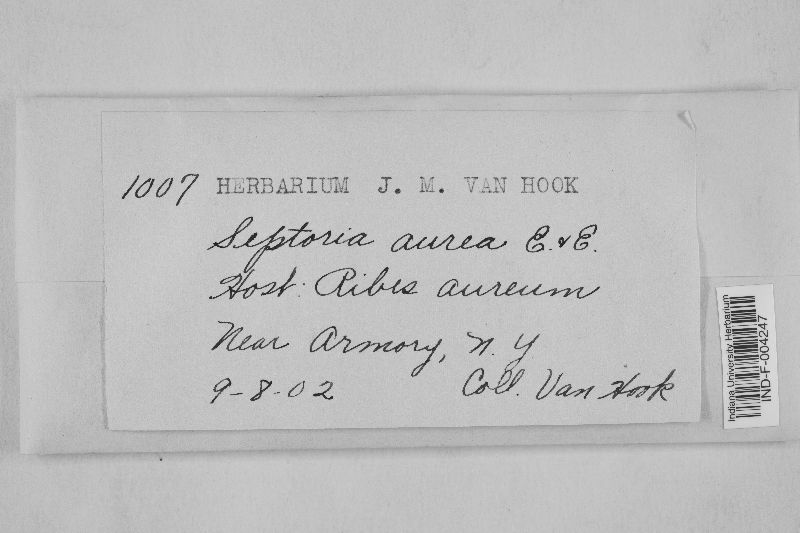 1007 HERBARIUM J. M. VAN HOOK
Septoria aurea E. & E.
Host: Ribes aureum
Near Armory, N. Y
9-8-02 Coll. Van Hook
Indiana University Herbarium
IND-F-004247